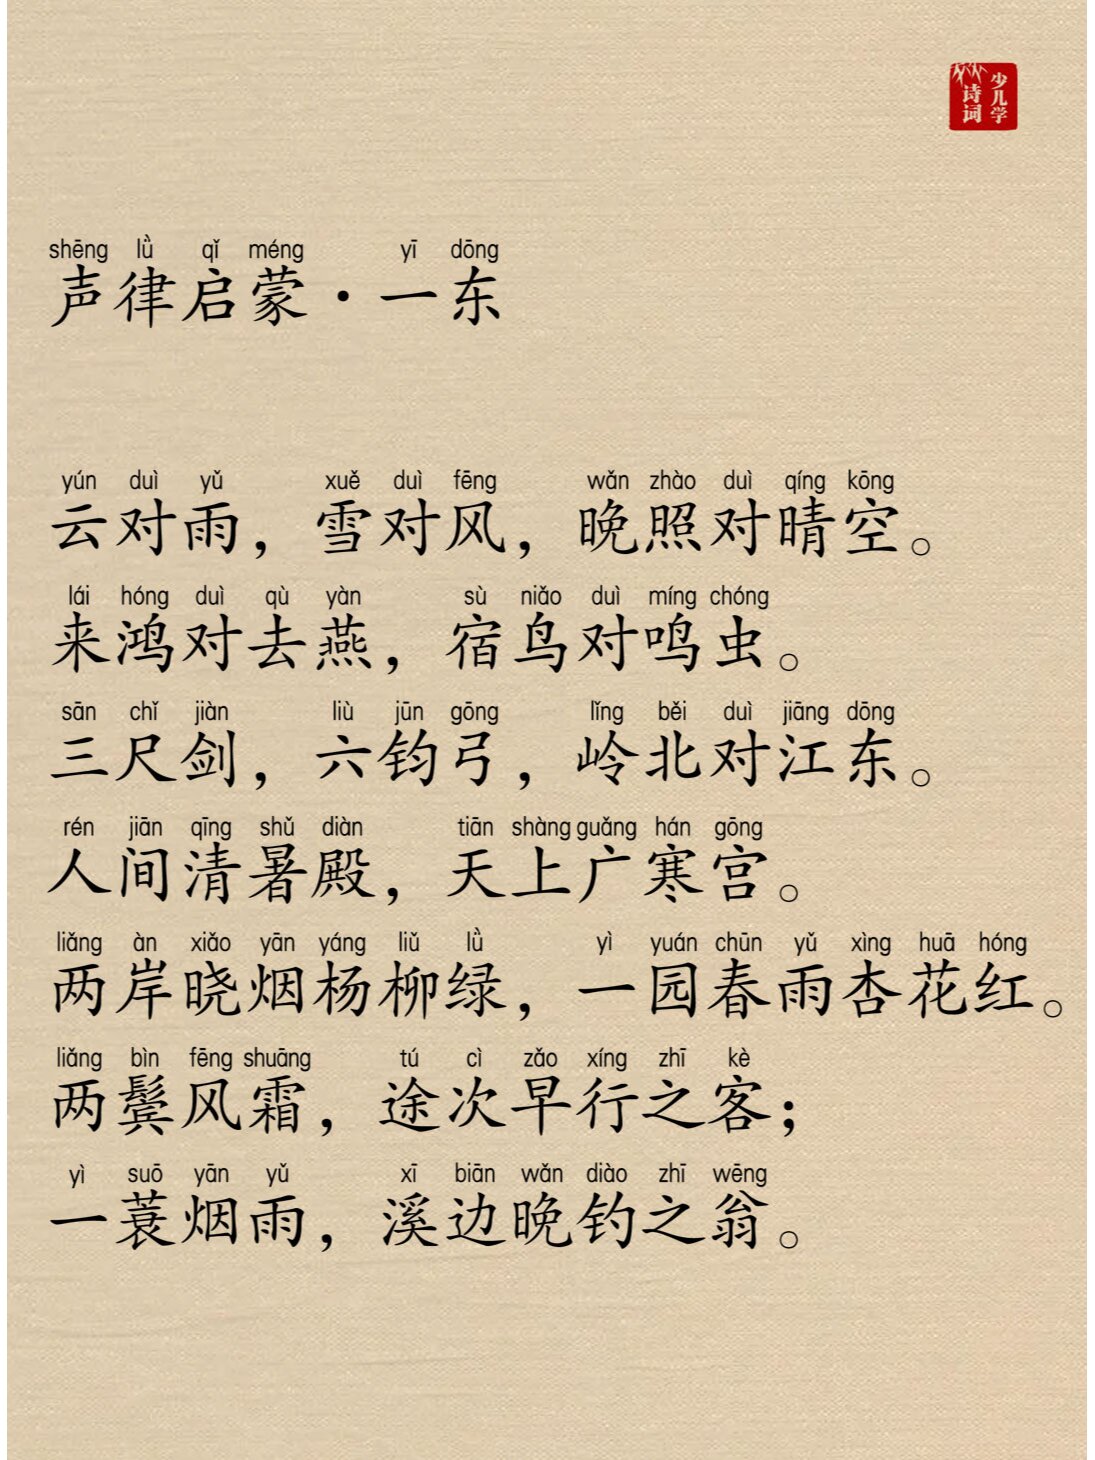 少儿学
诗词
shēng lǜ qǐ méng yī dōng
声律启蒙·一东
yún duì yǔ xuě duì fēng wǎn zhào duì qíng kōng
云对雨，雪对风，晚照对晴空。
lái hóng duì qù yàn sù niǎo duì míng chóng
来鸿对去燕，宿鸟对鸣虫。
sān chǐ jiàn liù jūn gōng lǐng běi duì jiāng dōng
三尺剑，六钧弓，岭北对江东。
rén jiān qīng shǔ diàn tiān shàng guǎng hán gōng
人间清暑殿，天上广寒宫。
liǎng àn xiǎo yān yáng liǔ lǜ yì yuán chūn yǔ xìng huā hóng
两岸晓烟杨柳绿，一园春雨杏花红。
liǎng bìn fēng shuāng tú cì zǎo xíng zhī kè
两鬓风霜，途次早行之客；
yì suō yān yǔ xī biān wǎn diào zhī wēng
一蓑烟雨，溪边晚钓之翁。